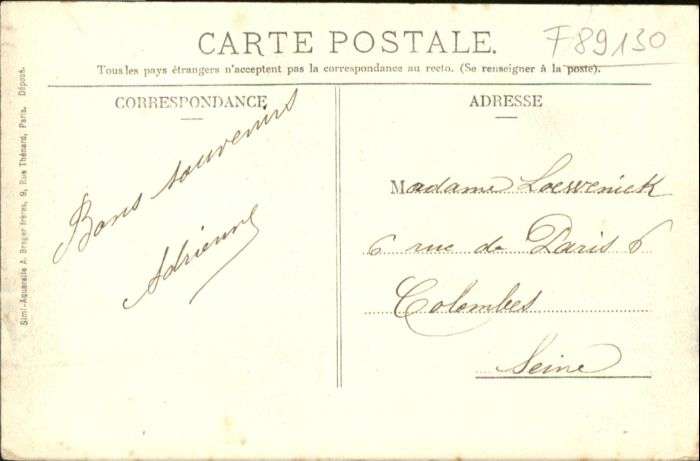 CARTE POSTALE.
F89130
Tous les pays étrangers n'acceptent pas la correspondance au recto. (Se renseigner à la poste).
CORRESPONDANCE
Bons souvenirs
Adrienne
ADRESSE
Madame Loesvenick
6 rue de Paris 6
Colombes
Seine
Simi-Aquarelle A. Breger frères, 9, Rue Thénard, Paris. Déposé.